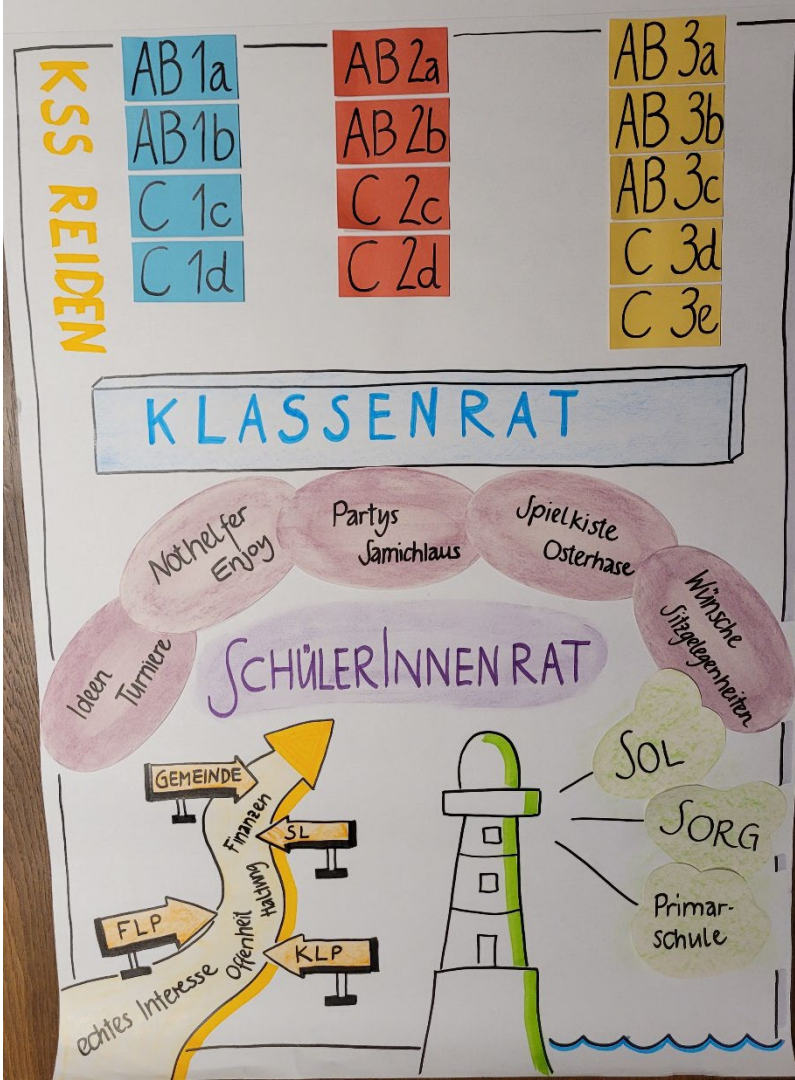 KSS REIDEN
AB 1a
AB 1b
C 1c
C 1d
AB 2a
AB 2b
C 2c
C 2d
AB 3a
AB 3b
AB 3c
C 3d
C 3e
KLASSENRAT
Ideen
Turniere
Nothelfer
Enjoy
Partys
Samichlaus
Spielkiste
Osterhase
Wünsche
Sitzgelegenheiten
SCHÜLERINNENRAT
GEMEINDE
Finanzen
SL
Haltung
FLP
Offenheit
KLP
echtes Interesse
SOL
SORG
Primar-
schule